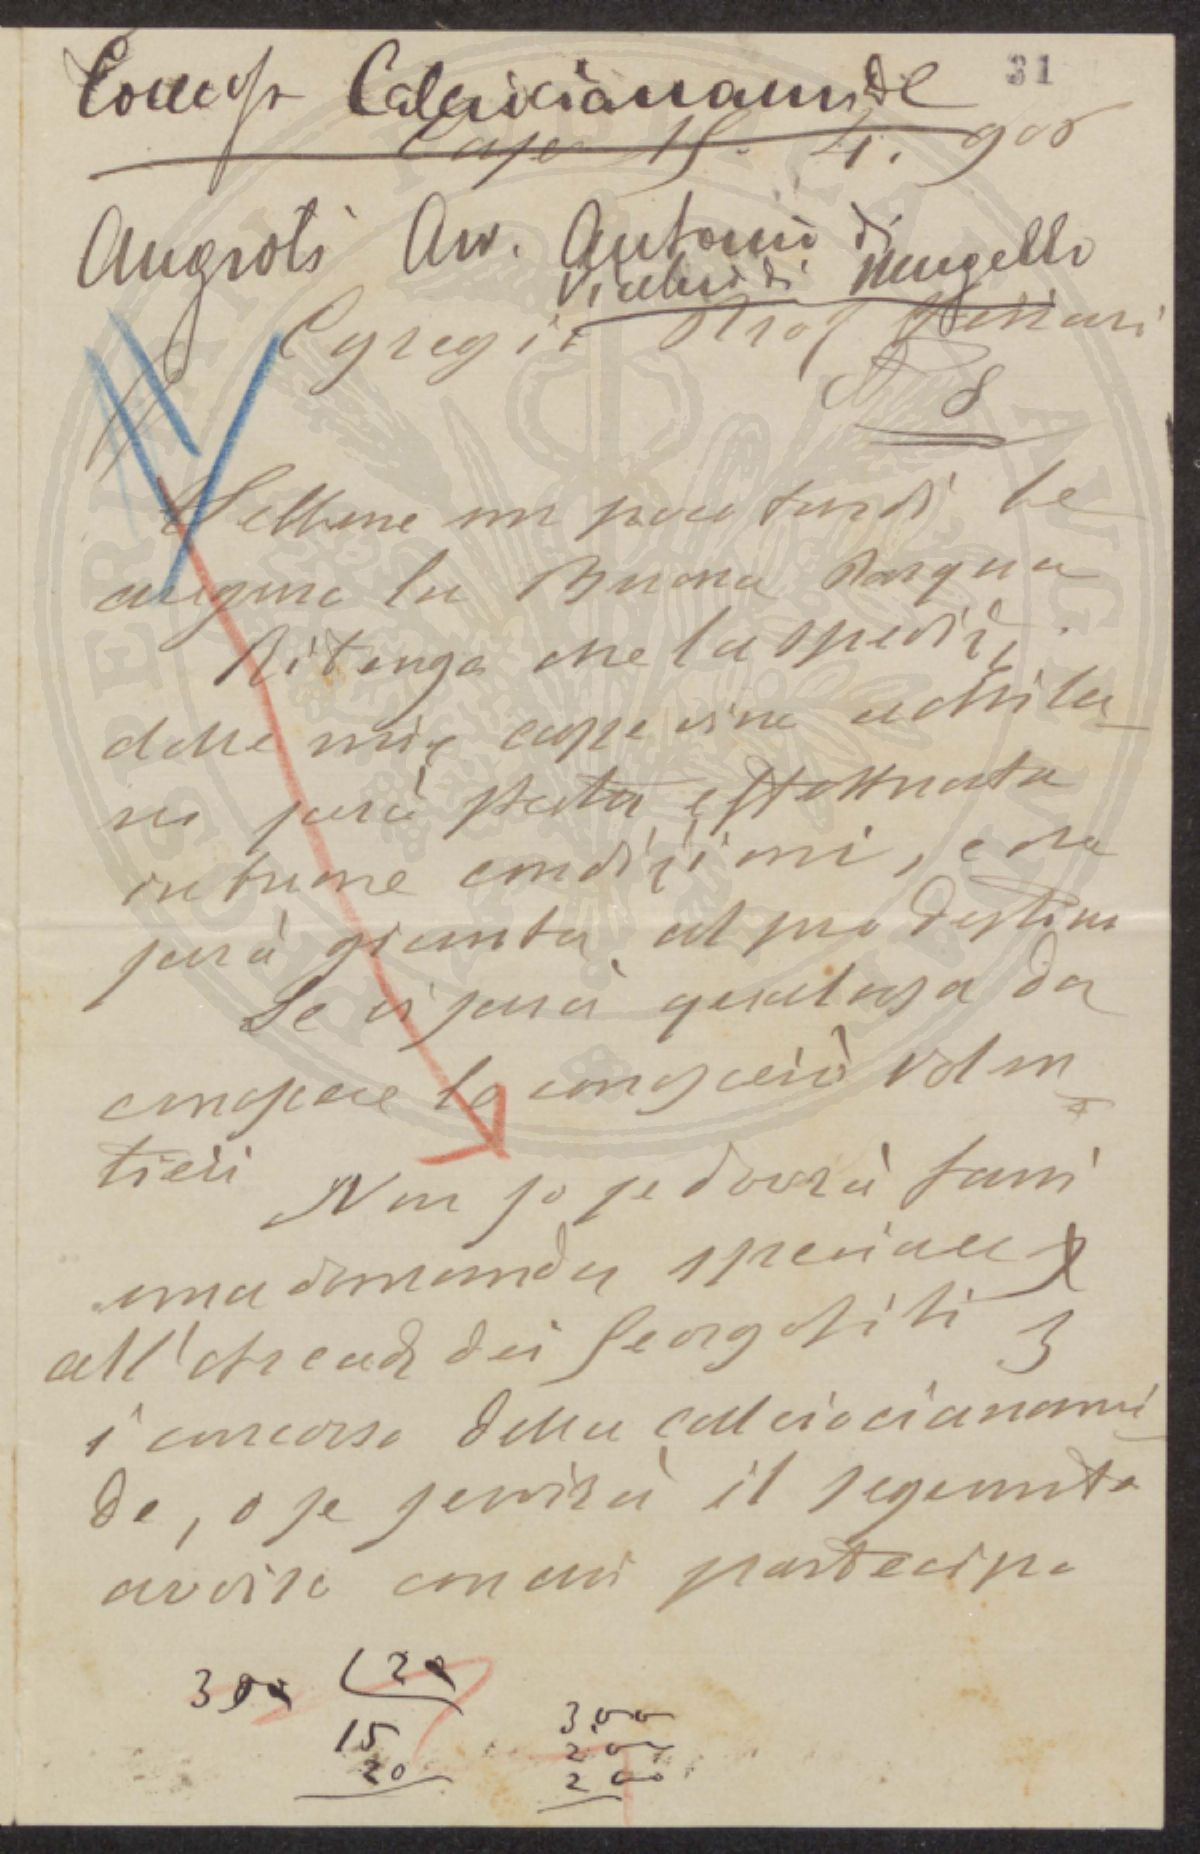 Calciocianamide
31
15. 4. 908
Angroti Avv. Antonio di
Vicchio di Mugello
Egregio Prof
8
Sebbene un poco tardi le
auguro la Buona Pasqua
Ritengo che la spediz.
delle mie
sarà stata effettuata
in buone condizioni, e che
sarà giunta al suo destino
Se vi sarà qualcosa da
lo volen
tieri Non so se dovrà farsi
una domanda speciale
all'Accad dei Georgofili
concorso della calciocianami
de, o se servirà il seguente
avviso con cui partecipo
300 20
15
20
300
200
200